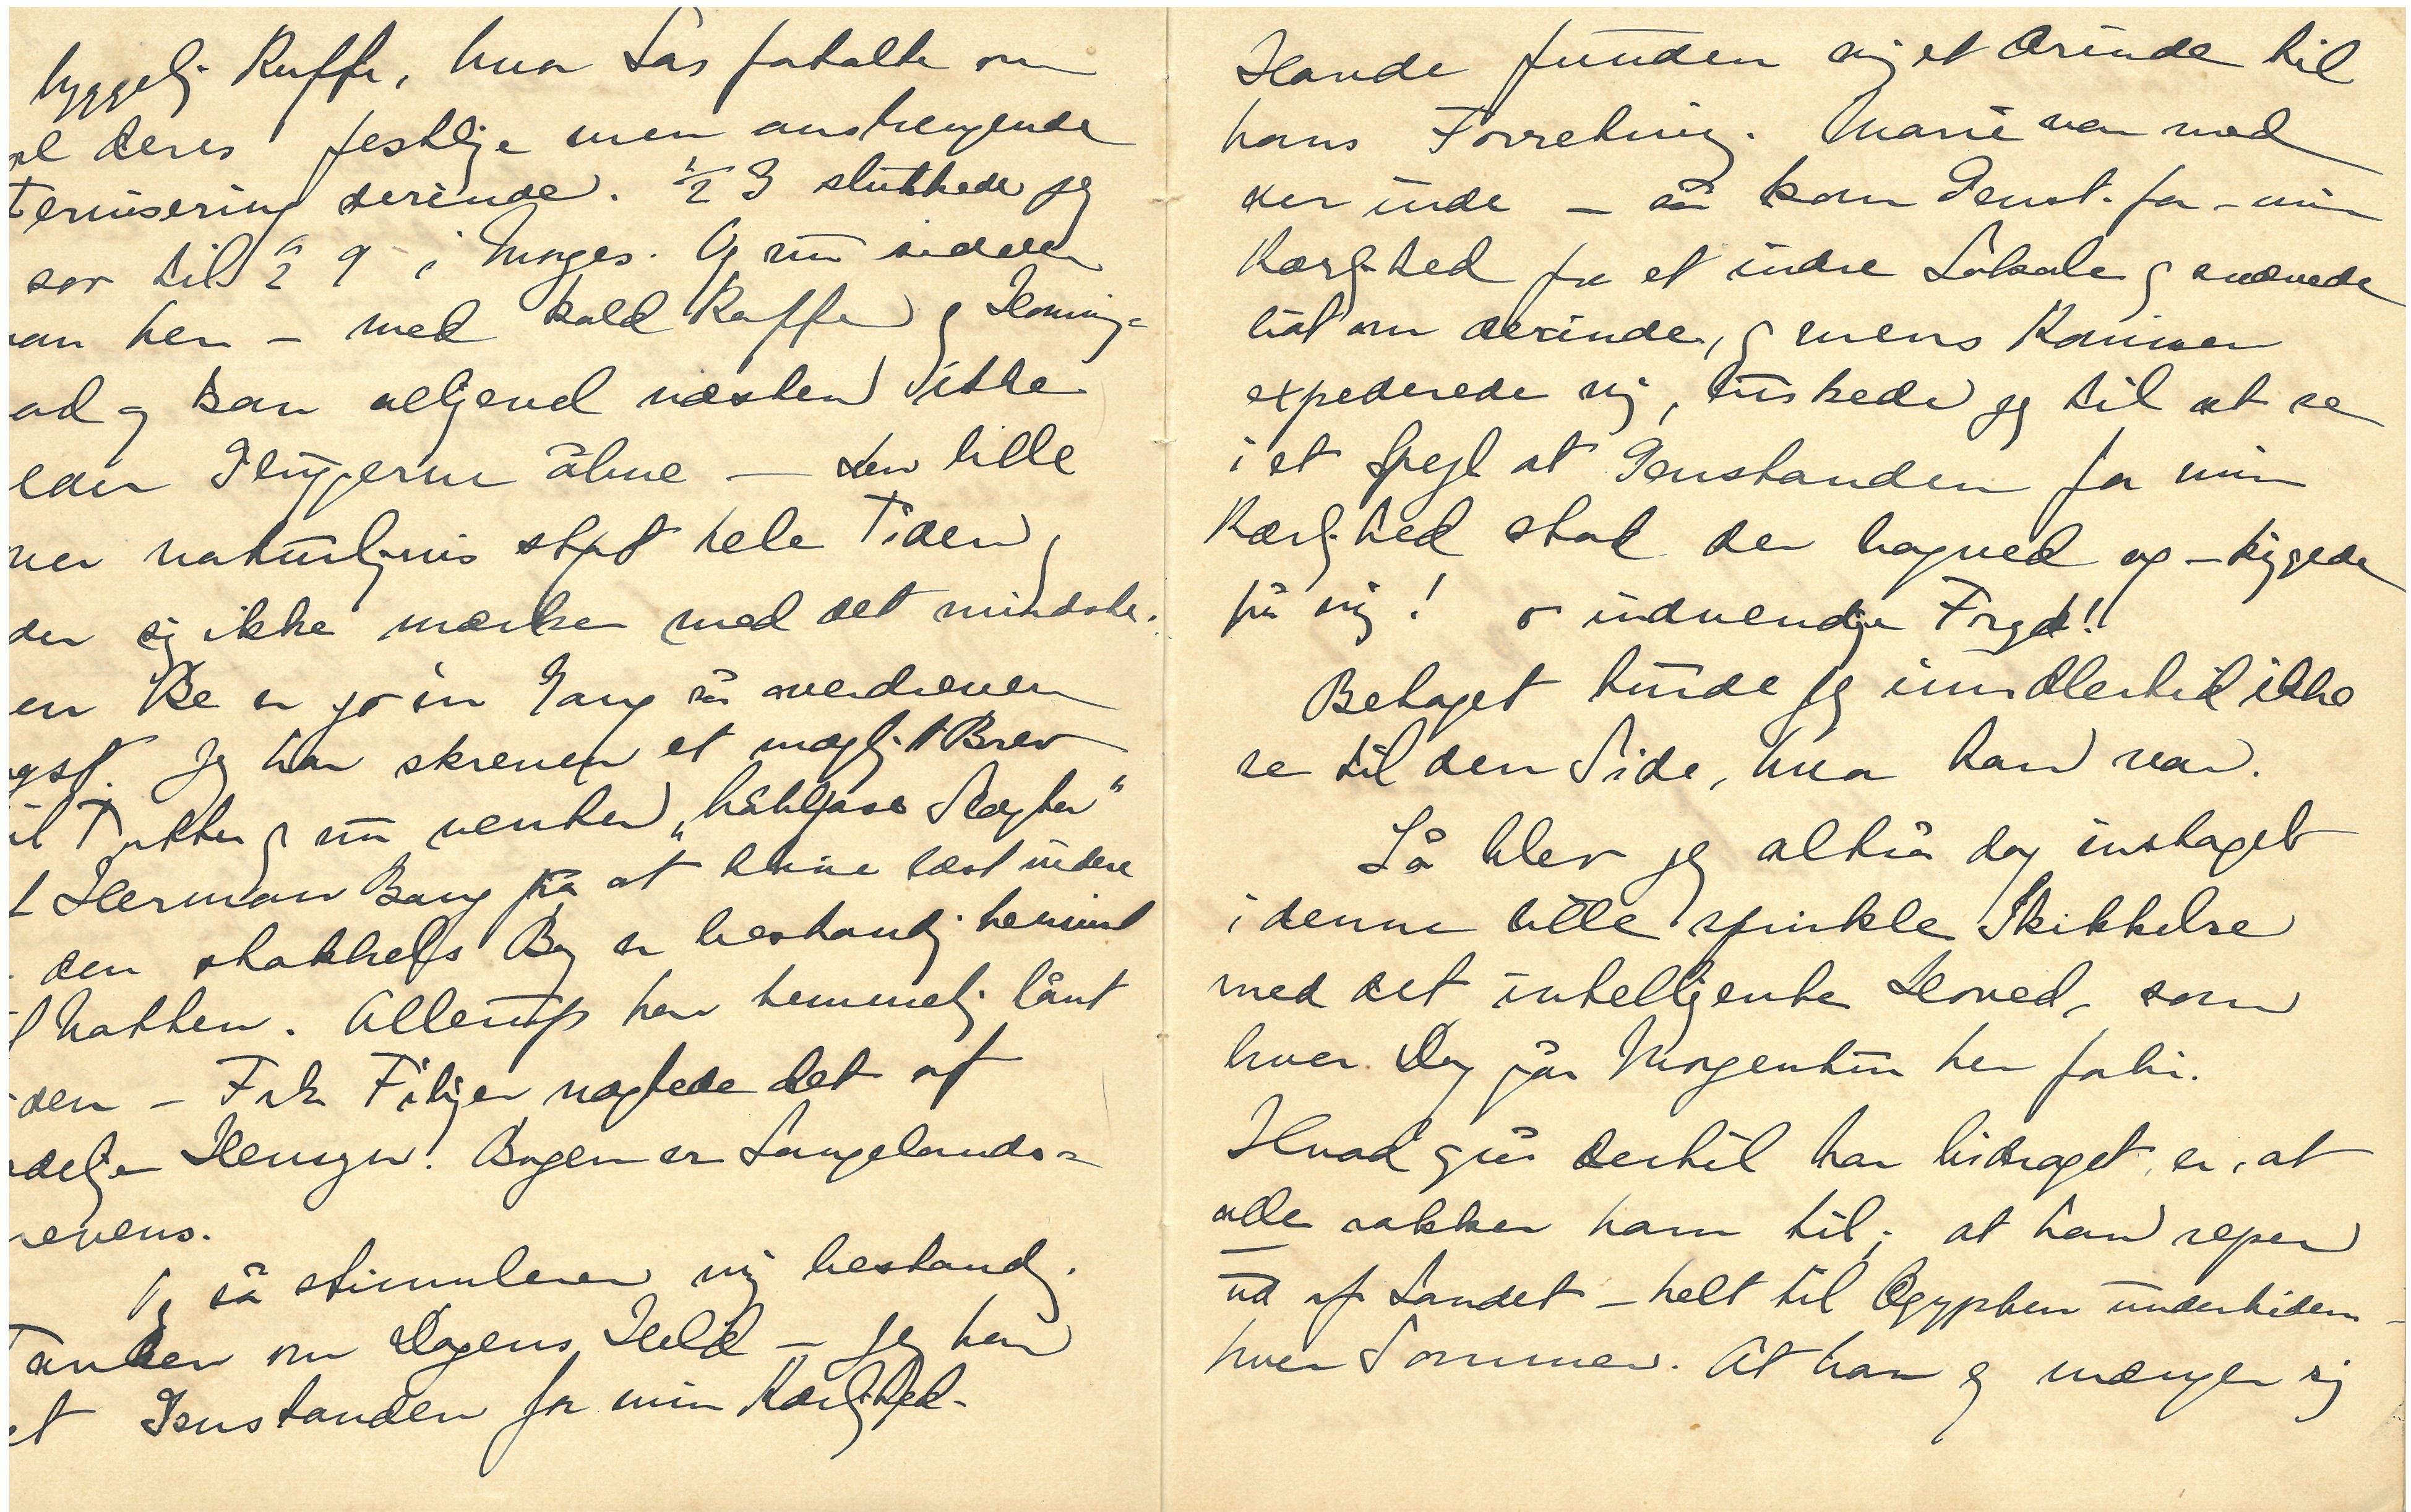 hyggelig Kaffe, hvor Las fortalte om
al deres festlige men anstrengende
ternisering derinde. ½ 3 slukkede jeg
sov til ½ 9 i Morges. Og nu sidder
man her – med kold Kaffe og Honning=
ad og kan alligevel næsten ikke
den Gluggerne åbne – den lille
ver naturligvis stpt hele Tiden,
der sig ikke mærke med det mindste.
en Be er jo en Gang så overdreven
gst. Jeg har skrevet et mægtigt Brev
il Tutter og nu venter „håbløse Slægter"
t Herman Bang på at blive læst videre
den stakkels Bog er bestandig henvist
l Natten. Allerups har hemmelig lånt
den – Frk Filijer nægtede det af
delige Hensyn! Bogen er Langelands=
revens.
Og så stimulerer mig bestandig
Tanken om Dagens Held – Jeg har
et Genstanden for min Kærlighed.
Havde funden mig et Ærinde til
hans Forretning. Marie var med
der inde – så kom Genst. for – min
Kærlighed fra et indre Lokale og snævede
lidt om derinde, og mens Kommis
expederede mig, luskede jeg til at se
i et Spejl at Genstanden for min
Kærlighed stod der bagved og – kiggede
på mig! o indvendige Fryd!!
Betaget turde jeg imidlertid ikke
se til den Side, hvor han var.
Så blev jeg altså dog indtaget
i denne lille spinkle Skikkelse
med det intelligente Hoved, som
hver Dag går Morgentur her forbi.
Hvad også dertil har bidraget, er, at
alle rakker ham til; at han rejser
ud af Landet – helt til Ægypten undertiden –
hver Sommer. At han ej mænger sig